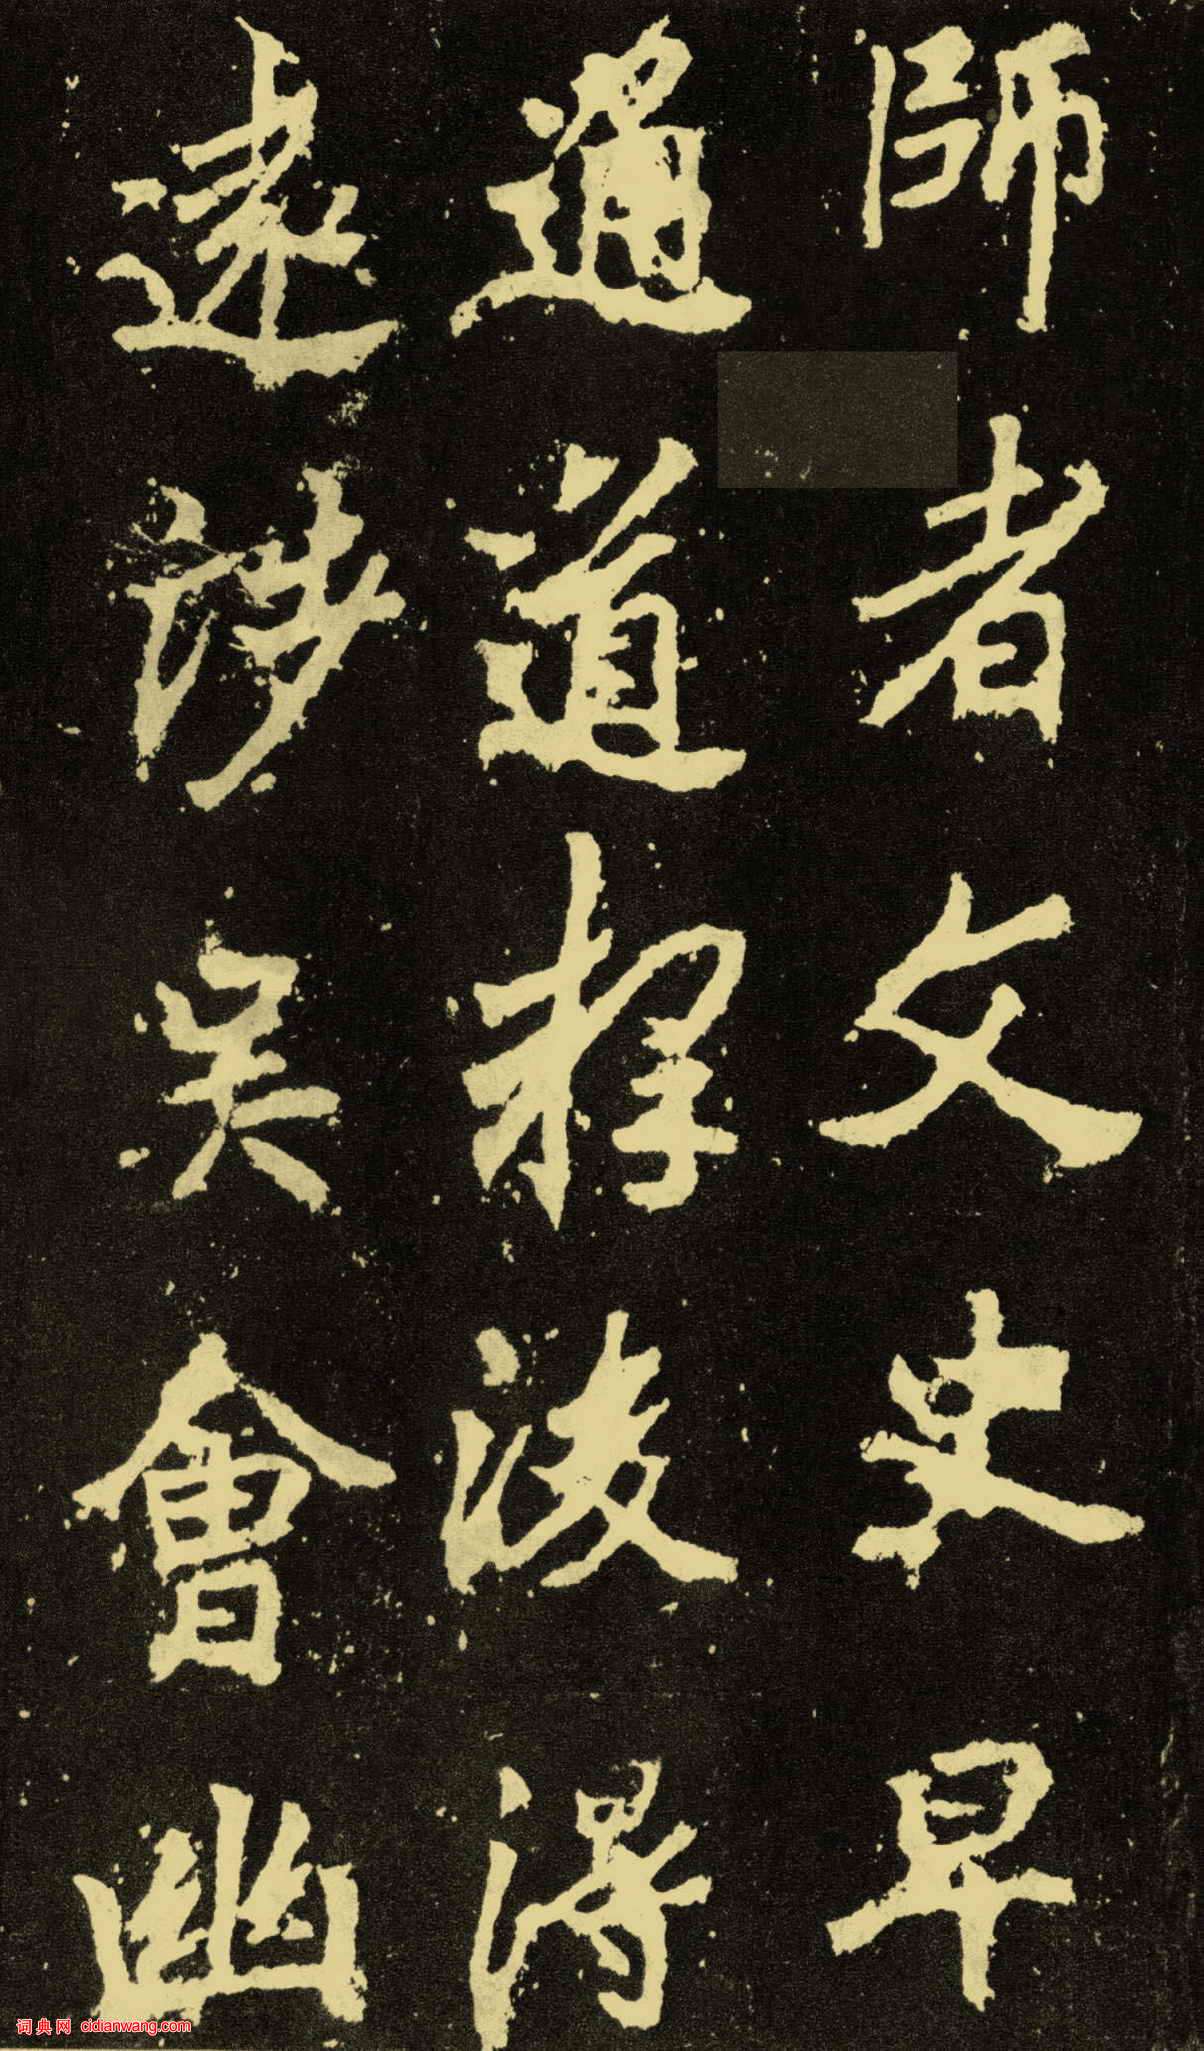 師者文史早
通道釋後得
遠涉吳會幽
词典网 cidianwang.com